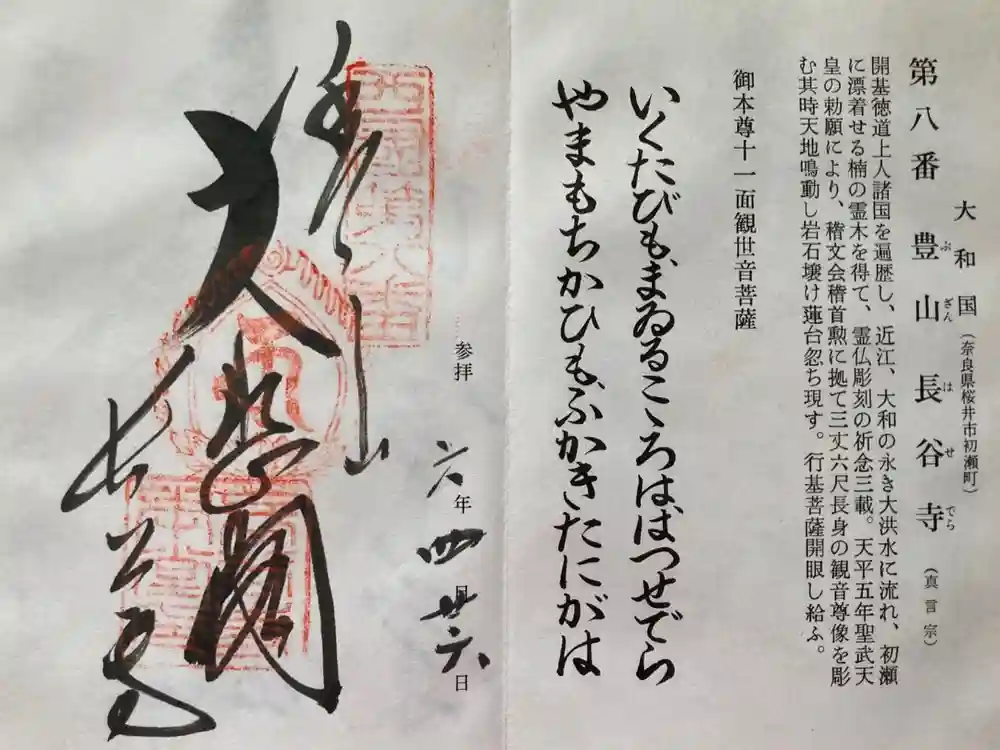 大和国(奈良県桜井市初瀬町)
第八番 豊山長谷寺(真言宗)
ぶざん はせでら
開基徳道上人諸国を遍歴し、近江、大和の永き大洪水に流れ、初瀬
に漂着せる楠の霊木を得て、霊仏彫刻の祈念三載。天平五年聖武天
皇の勅願により、稽文会稽首勲に拠て三丈六尺長身の観音尊像を彫
む其時天地鳴動し岩石壌け蓮台忽ち現す。行基菩薩開眼し給ふ。
御本尊十一面観世音菩薩
いくたびもまゐるこゝろははつせでら
やまもちかひもふかきたにがは
参拝
六年四月廿六日
西國第八番
大悲閣
長谷寺